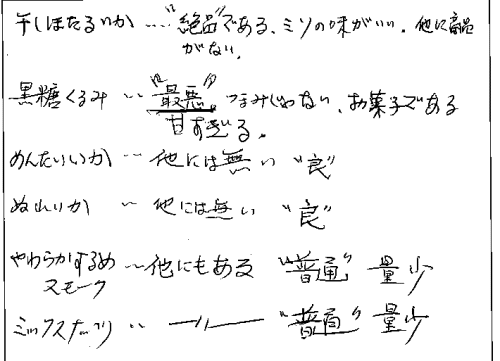 干しほたるいか … "絶品"である、ミソの味がいい。他に商品
がない。
黒糖くるみ … "最悪" つまみじゃない、お菓子である
甘すぎる。
めんたいいか … 他には無い "良"
ぬれいか … 他には無い "良"
やわらかするめ … 他にもある "普通" 量少
スモーク
ミックスナッツ … 〃 "普通" 量少